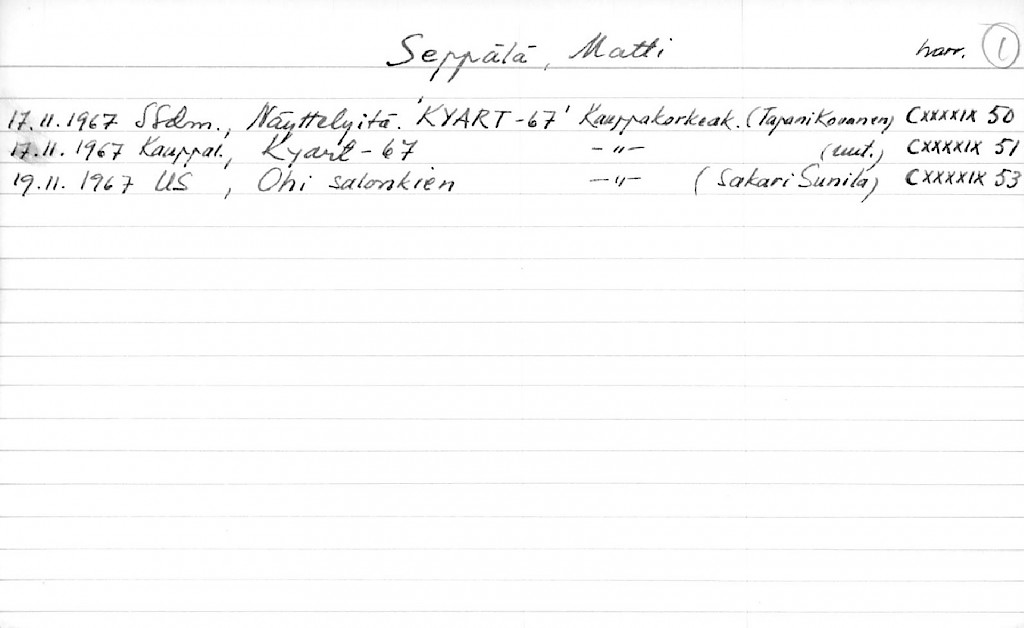 Seppälä, Matti harr. 1
17.11.1967 SSdm., Näyttelyitä. 'KYART-67' Kauppakorkeak. (Tapani Kovanen) CXXXXIX 50
17.11.1967 Kauppal., Kyart-67 -"- (uut.) CXXXXIX 51
19.11.1967 US, Ohi salonkien -"- (Sakari Sunila) CXXXXIX 53